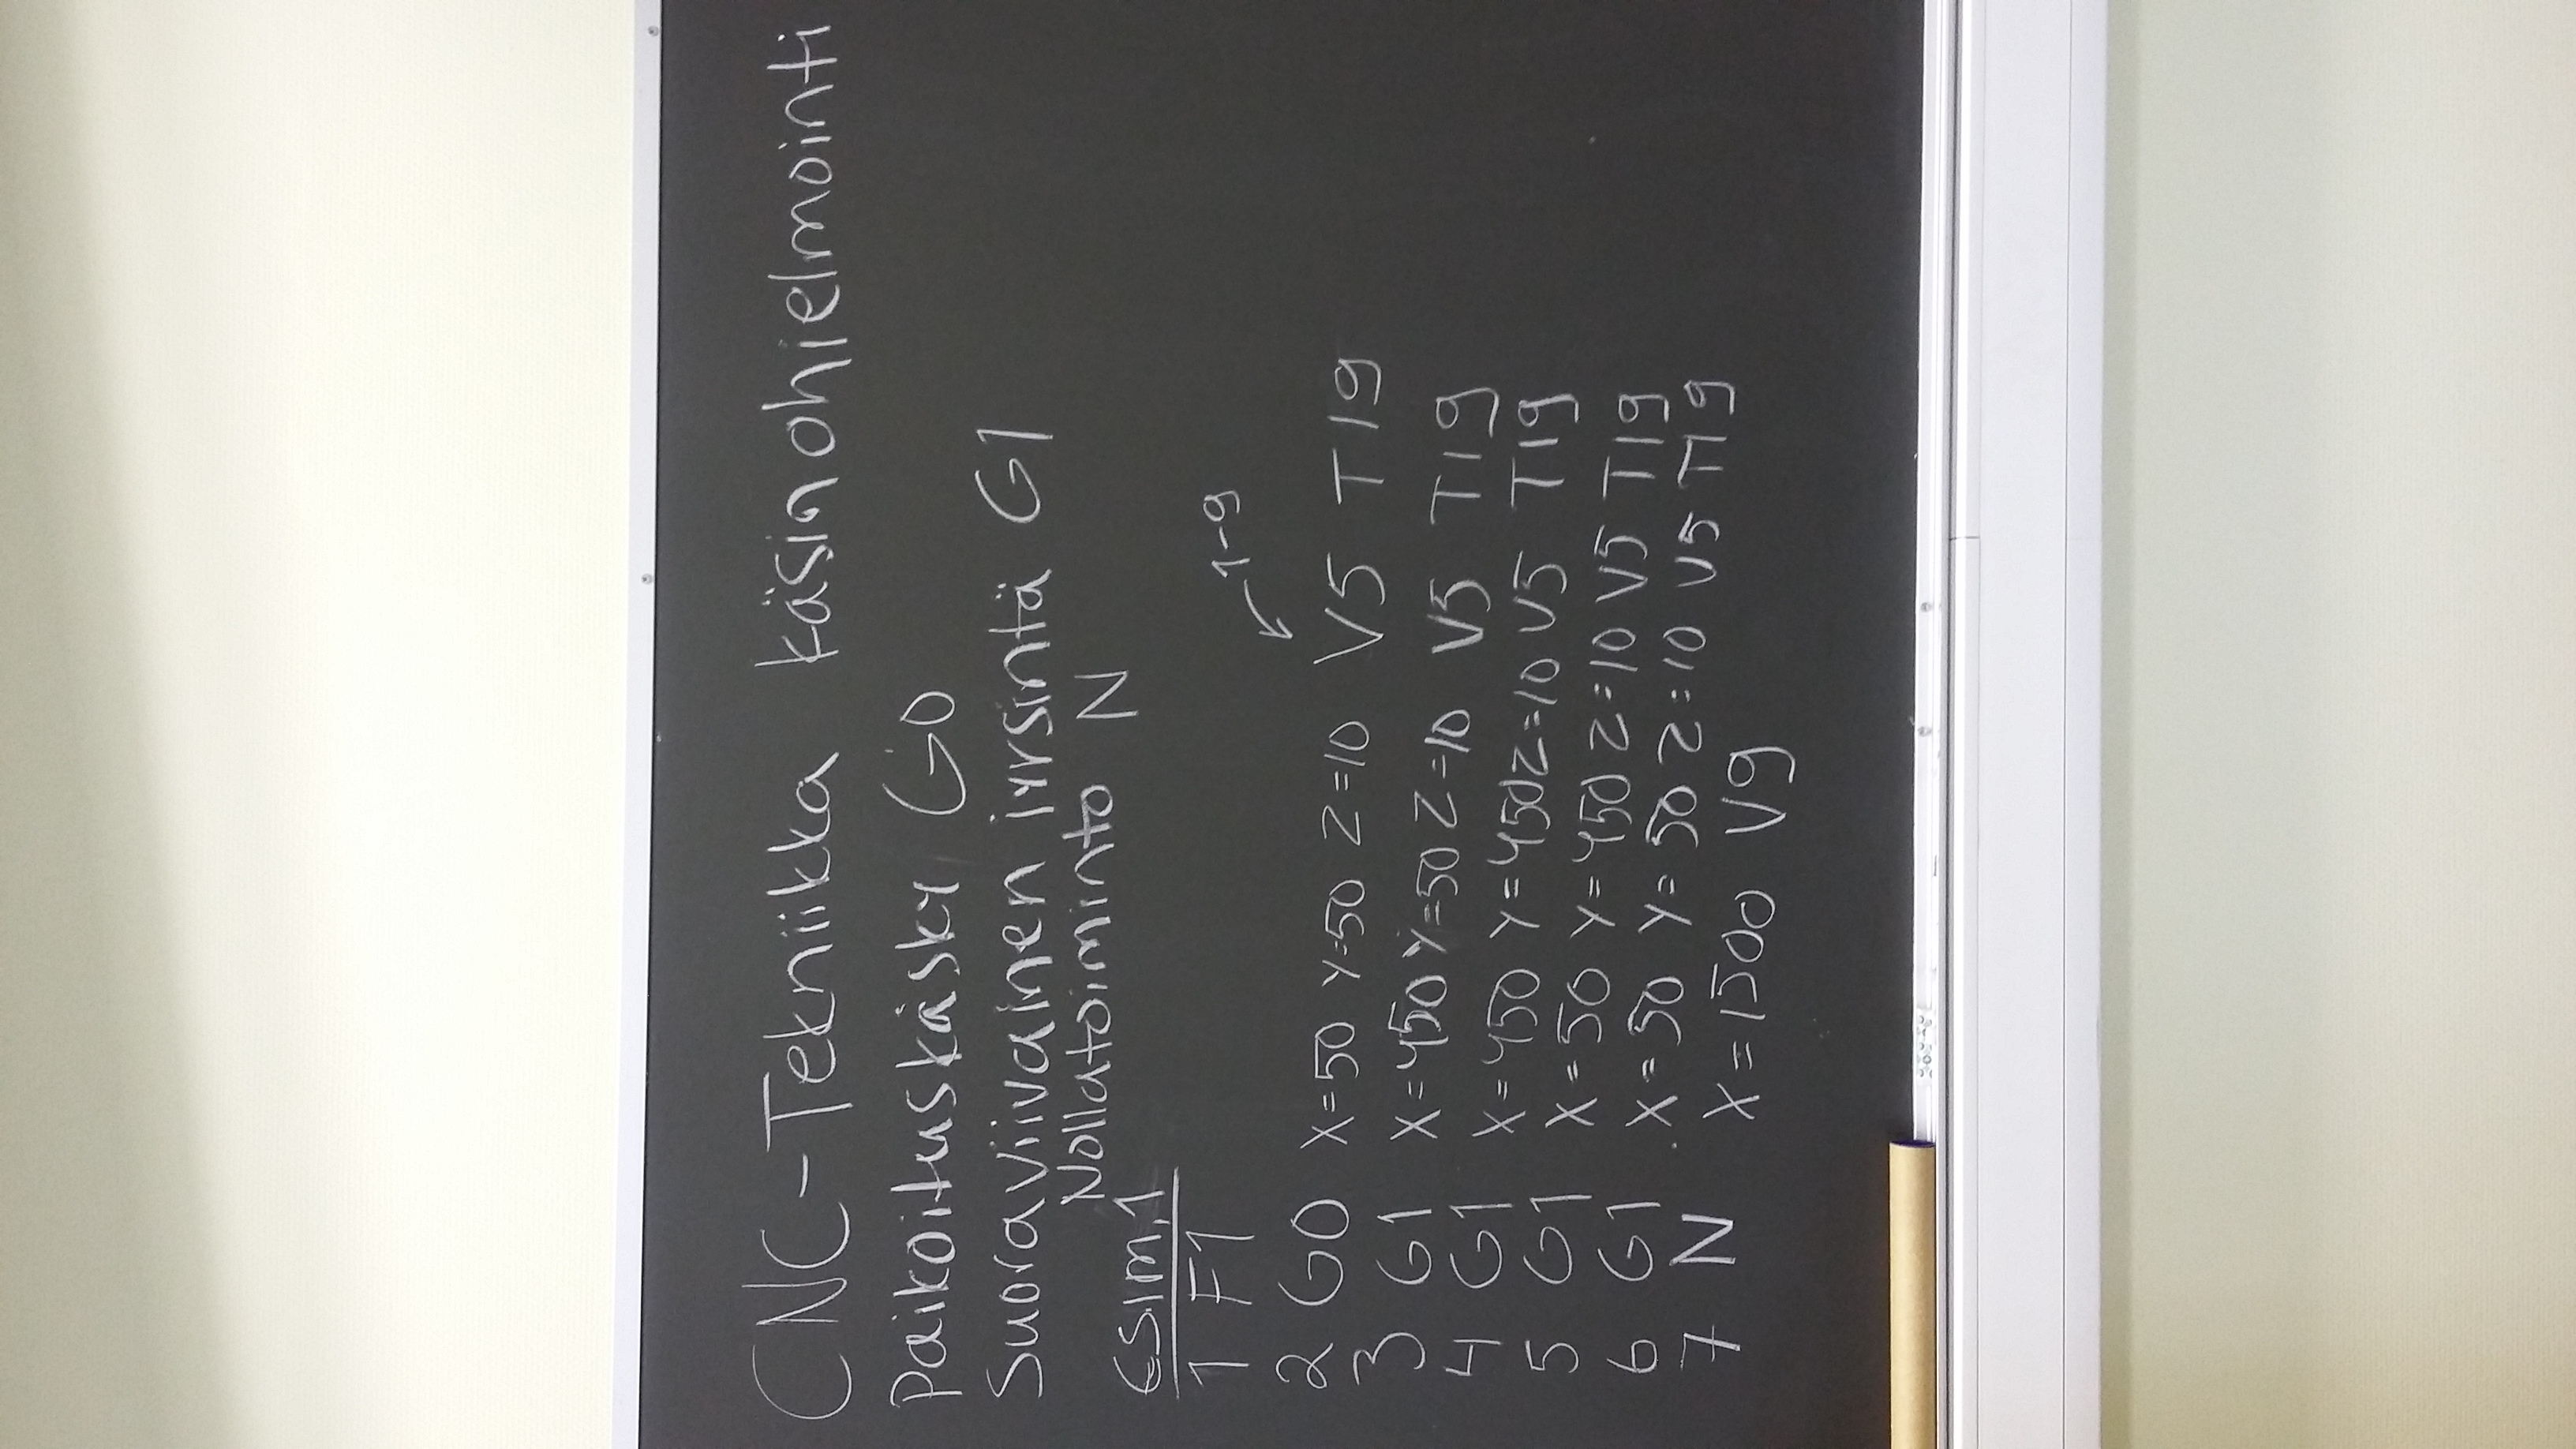 CNC-Tekniikka käsinohjelmointi
Paikoituskäsky G0
Suoraviivainen jyrsintä G1
Nollatoiminto N
Esim.1
1 F1
1-9
2 G0 X=50 Y=50 Z=10 V5 T19
3 G1 X=450 Y=50 Z=10 V5 T19
4 G1 X=450 Y=450 Z=10 V5 T19
5 G1 X=50 Y=450 Z=10 V5 T19
6 G1 X=50 Y=50 Z=10 V5 T19
7 N X=1500 V9